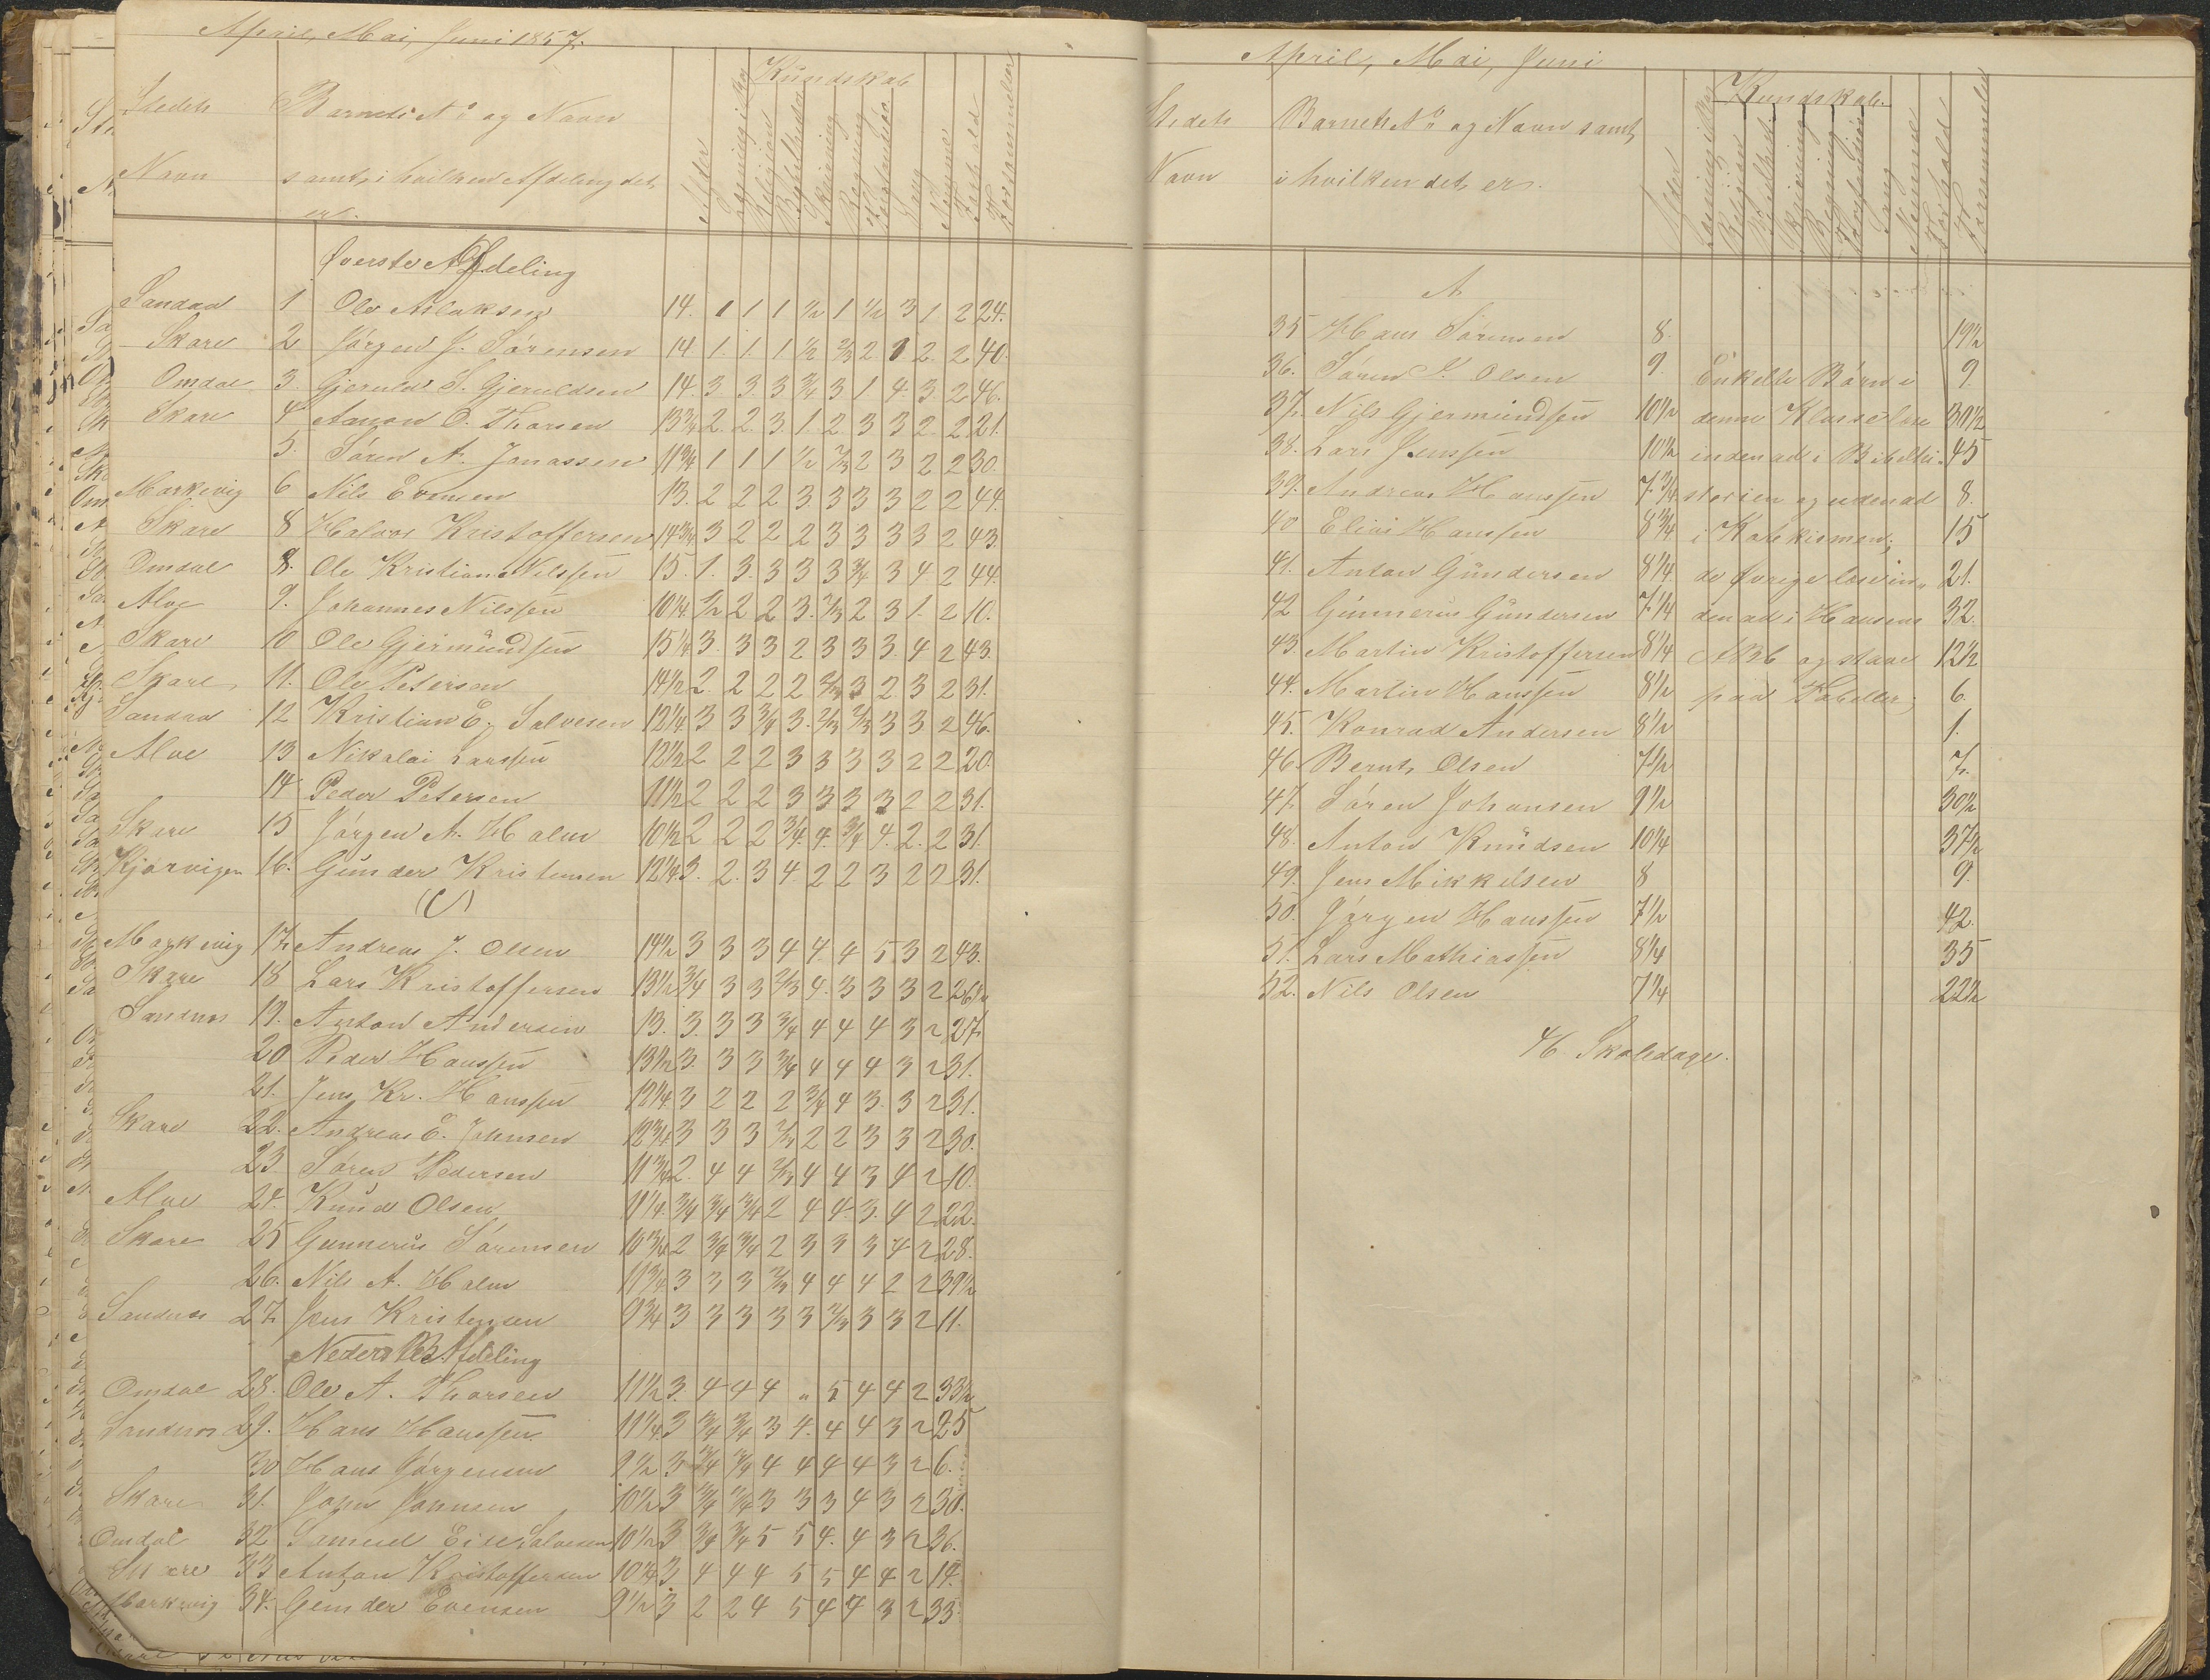 April, Mai, Juni 1857.
Stedets Barnets No og Navn Kundskab
Navn samt i hvilken Afdeling det er.
Alder Læsning i Bog Religion Bibelhistorie Skrivning Regning Forstandsøv. Sang Nemme Forhold Forsømmelser
Øverste Afdeling
Sandnes 1 Ole Aslaksen 14. 1 1 1 1/2 1 1/2 3 1 2 24.
Skare 2 Jörgen J. Sörensen 14 1. 1. 1 1/2 2/3 2 1 2. 2 40.
Omdal 3. Gjeruld S. Gjeruldsen 14. 3 3. 3 3/4 3 1 4. 3 2 46.
Skare 4 Aanon O. Thorsen 13 3/4 2. 2. 3. 1. 2. 3 3 2. 2 21.
5. Sören A. Jonassen 11 3/4 1 1 1 1/2 2/3 2 3 2 2 30.
Markevig 6 Nils Evensen 13. 2 2 2 3. 3 3 3 2 2 44.
Skare 8 Halvor Kristoffersen 14 3/4 3 2 2 2 3 3 3 3 2 43.
Omdal 8. Ole Kristian Nilssen 15. 1. 3. 3 3 3 3/4 3 4 2 44.
Alve 9. Johannes Nilssen 10 1/4 1/2 2 2 3. 2/3 2 3 1. 2 10.
Skare 10 Ole Gjermundsen 15 1/4 3. 3 3 2 3 3 3. 4 2 43.
Skare 11. Ole Petersen 14 1/2 2. 2 2 2 2/3 3 2 3 2 31.
Sandnes 12 Kristian E. Salvesen 12 1/4 3 3 3/4 3. 2/3 2/3 3 3 2 46.
Alve 13 Nikolai Larssen 12 1/2 2 2 2 3 3 3 3 2 2 20.
14 Peder Petersen 11 1/2 2 2 2 3 3 3 3 2 2 31.
Skare 15 Jörgen A. Holm 10 1/2 2 2 2 3/4 4. 3/4 4. 2. 2 31.
Kjörvigen 16. Gunder Kristensen 12 1/4 3. 2. 3 4 2 2 3 2 2 31.
Markevig 17. Andreas J. Olsen 14 1/2 3 3 3 4 4. 4 5 3 2 43.
Skare 18 Lars Kristoffersen 13 1/2 3/4 3 3 2/3 4. 3 3 3 2 26 1/2
Sandnes 19. Anton Andersen 13. 3. 3 3 3/4 4 4 4 3 2 27.
20 Peder Hanssen 13 1/2 3. 3 3 3/4 4 4 4 3 2 31.
21. Jens Kr. Hanssen 12 1/4 3 2 2 2 3/4 4 3. 3 2 31.
Skare 22. Andreas E. Johnsen 12 3/4 3 3 3 2/3 2 2 3 3 2 30.
23 Sören Pedersen 11 3/4 2. 4 4 2/3 4 4 3 4 2 10.
Alve 24. Knud Olsen 11 1/4. 3/4 3/4 3/4 2 4 4. 3. 4 2 22.
Skare 25 Gunnerius Sörensen 10 3/4 2 3/4 3/4 2 3 3 3 4 2 28.
26. Nils A. Holm 11 3/4 3 3 3 2/3 4 4 4 2 2 39 1/2
Sandnes 27. Jens Kristensen 9 3/4 3 3 3 3 3 2/3 3 3 2 11.
Nederste Afdeling
Omdal 28. Ole A. Thorsen 11 1/2 3. 4 4 4 " 5 4 4 2 33 1/2
Sandnes 29. Hans Hanssen 11 1/4 3 3/4 3/4 3 4. 4 4 3 2 25
30 Hans Jörgensen 9 1/2 3 3/4 3/4 4 4 4 4 3 2 6.
Skare 31. John Johnsen 10 1/2 3 3/4 3/4 3 3 3 4 3 2 30.
Omdal 32 Samuel Salvesen 10 1/2 3 3/4 3/4 5 5 4. 4 3 2 36.
Skare 33 Anton Kristoffersen 10 1/4 3 4 4 4 5 5 4 4 2 14.
Markevig 34. Gunder Evensen 9 1/2 3 2 2 4 5 4 4 3 2 33.
April, Mai, Juni
Stedets Barnets No og Navn samt Kundskab.
Navn i hvilken det er.
Alder Læsning i Bog Religion Bibelhist. Skrivning Regning Forstandsöv. Sang Nemme Forhold Forsømmelser
A
35 Hans Sörensen 8. 19 1/2
36. Sören J. Olsen 9. Enkelte Börn i 9.
37. Nils Gjermundsen 10 1/2 denne Klasse læse 30 1/2
38. Lars Jenssen 10 1/2 inden ad i Bibelhi- 45
39. Andreas Hanssen 7 3/4 storien og uden ad 8.
40 Elias Hanssen 8 3/4 i Katekismen; 15
41. Anton Gundersen 8 1/4 de Øvrige læse in- 21.
42 Gunnerius Gundersen 7 1/4 den ad i Hansens 32.
43. Martin Kristoffersen 8 1/4 ABC og stave 12 1/2
44. Martin Hanssen 8 1/2 paa Tabeller; 6.
45. Konrad Andersen 8 1/2 1.
46. Bernt Olsen 7 1/2 7.
47. Sören Johansen 9 1/2 30 1/2
48. Anton Knudsen 10 1/4 37 1/2
49. Jens Mikkelsen 8 9.
50. Jörgen Hanssen 7 1/2 42.
51. Lars Mathiassen 8 1/4 35
52. Nils Olsen 7 1/4 22 1/2
46 Skoledage.